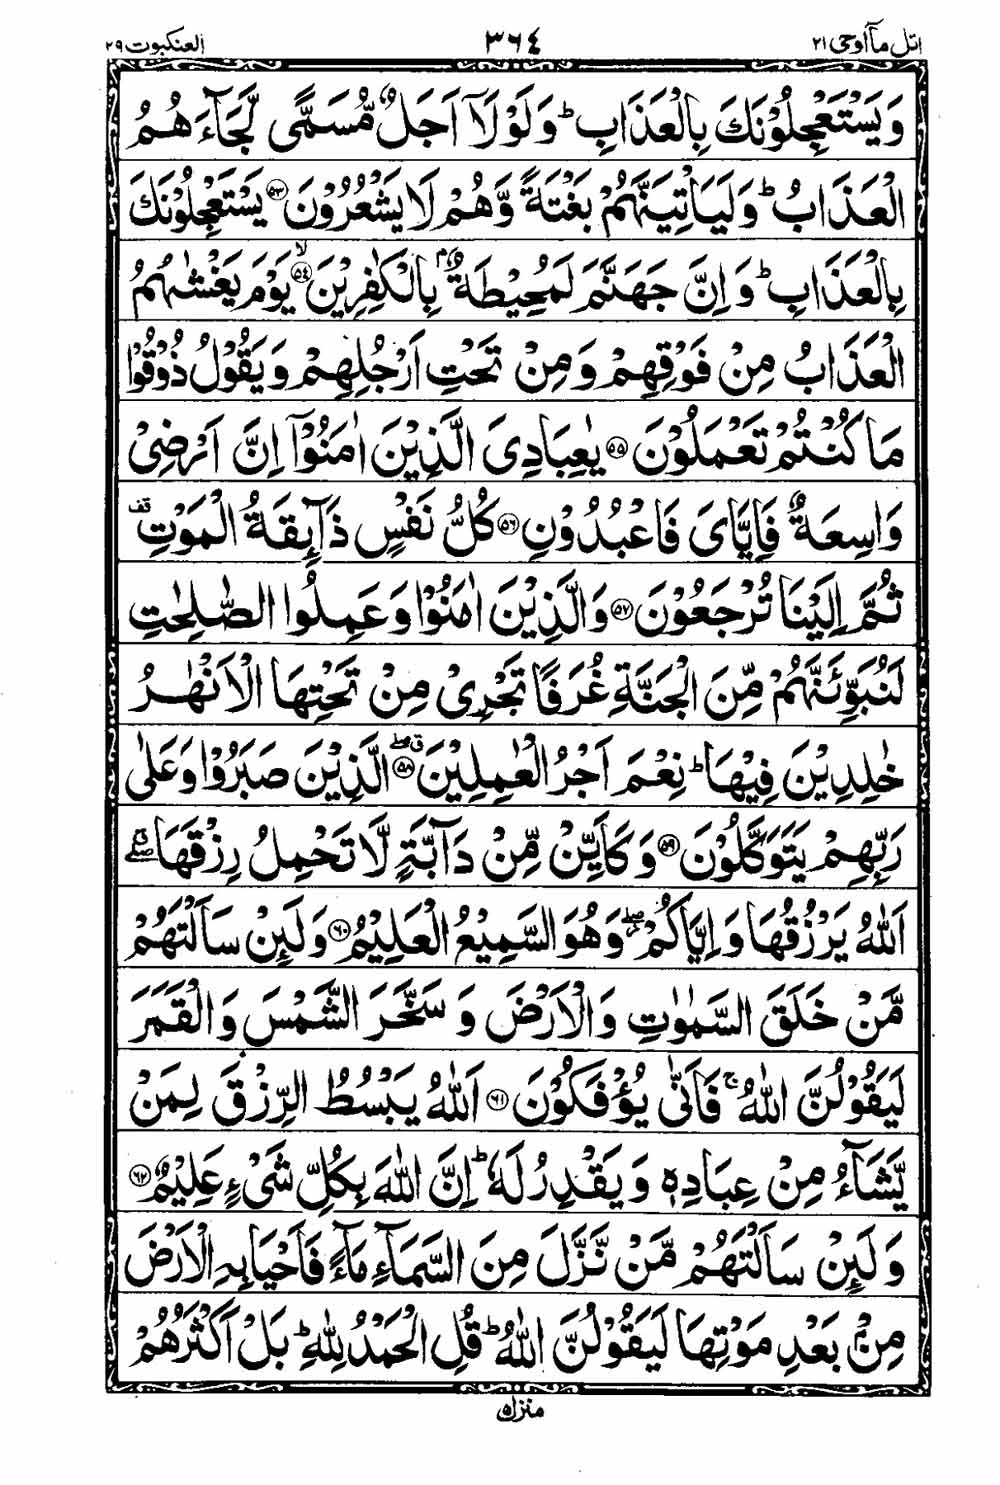 اتل ماۤاوحی ۲۱ ۳۶۴ العنکبوت ۲۹
وَيَسْتَعْجِلُوْنَكَ بِالْعَذَابِ ؕ وَلَوْلَاۤ اَجَلٌ مُّسَمًّى لَّجَآءَهُمُ
الْعَذَابُ ؕ وَلَيَاْتِيَنَّهُمْ بَغْتَةً وَّهُمْ لَا يَشْعُرُوْنَ ۵۳ يَسْتَعْجِلُوْنَكَ
بِالْعَذَابِ ؕ وَاِنَّ جَهَنَّمَ لَمُحِيْطَةٌۢ بِالْكٰفِرِيْنَ ۙ۵۴ يَوْمَ يَغْشٰىهُمُ
الْعَذَابُ مِنْ فَوْقِهِمْ وَمِنْ تَحْتِ اَرْجُلِهِمْ وَيَقُوْلُ ذُوْقُوْا
مَا كُنْتُمْ تَعْمَلُوْنَ ۵۵ يٰعِبَادِيَ الَّذِيْنَ اٰمَنُوْۤا اِنَّ اَرْضِيْ
وَاسِعَةٌ فَاِيَّايَ فَاعْبُدُوْنِ ۵۶ كُلُّ نَفْسٍ ذَآئِقَةُ الْمَوْتِ قف
ثُمَّ اِلَيْنَا تُرْجَعُوْنَ ۵۷ وَالَّذِيْنَ اٰمَنُوْا وَعَمِلُوا الصّٰلِحٰتِ
لَنُبَوِّئَنَّهُمْ مِّنَ الْجَنَّةِ غُرَفًا تَجْرِيْ مِنْ تَحْتِهَا الْاَنْهٰرُ
خٰلِدِيْنَ فِيْهَا ؕ نِعْمَ اَجْرُ الْعٰمِلِيْنَ ۵۸ الَّذِيْنَ صَبَرُوْا وَعَلٰى
رَبِّهِمْ يَتَوَكَّلُوْنَ ۵۹ وَكَاَيِّنْ مِّنْ دَآبَّةٍ لَّا تَحْمِلُ رِزْقَهَا
اَللّٰهُ يَرْزُقُهَا وَاِيَّاكُمْ ۖ وَهُوَ السَّمِيْعُ الْعَلِيْمُ ۶۰ وَلَئِنْ سَاَلْتَهُمْ
مَّنْ خَلَقَ السَّمٰوٰتِ وَالْاَرْضَ وَسَخَّرَ الشَّمْسَ وَالْقَمَرَ
لَيَقُوْلُنَّ اللّٰهُ ۚ فَاَنّٰى يُؤْفَكُوْنَ ۶۱ اَللّٰهُ يَبْسُطُ الرِّزْقَ لِمَنْ
يَّشَآءُ مِنْ عِبَادِهٖ وَيَقْدِرُ لَهٗ ؕ اِنَّ اللّٰهَ بِكُلِّ شَيْءٍ عَلِيْمٌ ۶۲
وَلَئِنْ سَاَلْتَهُمْ مَّنْ نَّزَّلَ مِنَ السَّمَآءِ مَآءً فَاَحْيَا بِهِ الْاَرْضَ
مِنْۢ بَعْدِ مَوْتِهَا لَيَقُوْلُنَّ اللّٰهُ ؕ قُلِ الْحَمْدُ لِلّٰهِ ؕ بَلْ اَكْثَرُهُمْ
منزل ۵